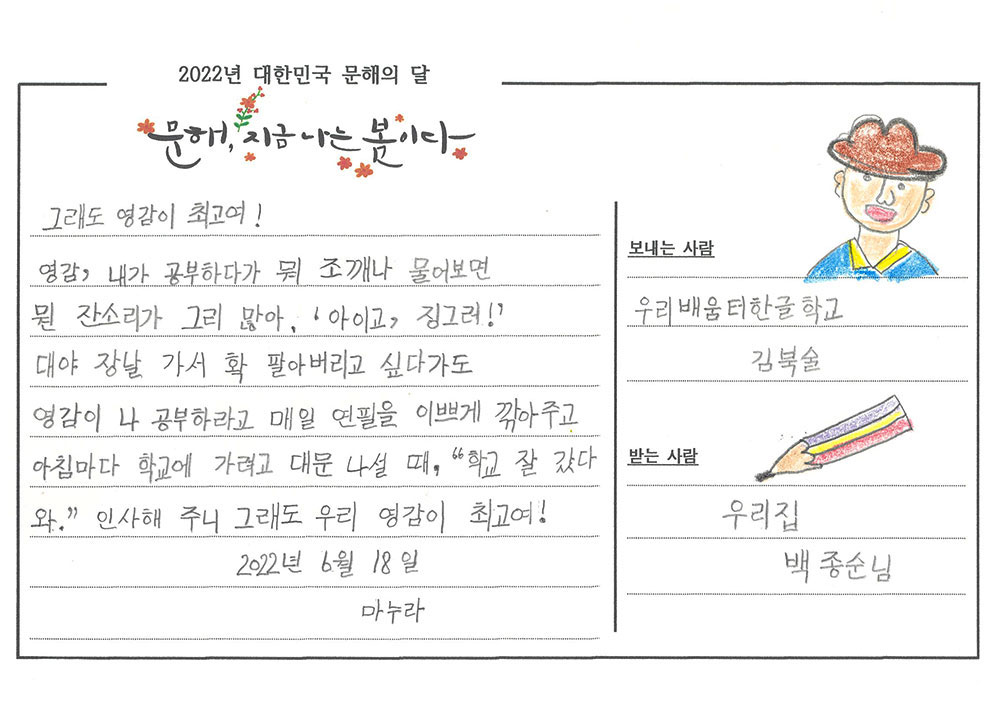 2022년 대한민국 문해의 달
문해, 지금 나는 봄이다
그래도 영감이 최고여!
영감, 내가 공부하다가 뭐 조깨나 물어보면
뭔 잔소리가 그리 많아, '아이고, 징그러!'
대야 장날 가서 확 팔아버리고 싶다가도
영감이 나 공부하라고 매일 연필을 이쁘게 깎아주고
아침마다 학교에 가려고 대문 나설 때, "학교 잘 갔다
와." 인사해 주니 그래도 우리 영감이 최고여!
2022년 6월 18일
마누라
보내는 사람
우리배움터한글학교
김북술
받는 사람
우리집
백종순님